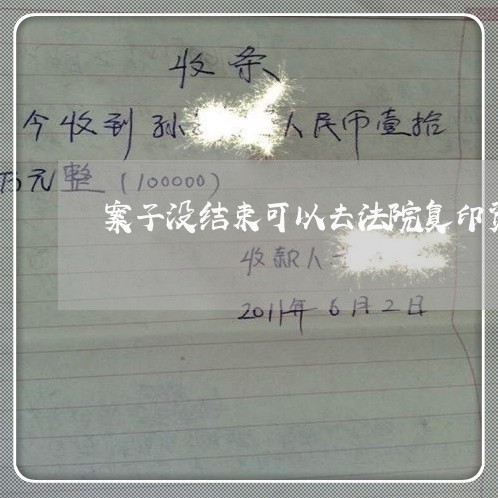 收条
今收到孙 人民币壹拾
万元整（100000）
案子没结束可以去法院复印资
收款人
2011年6月2日